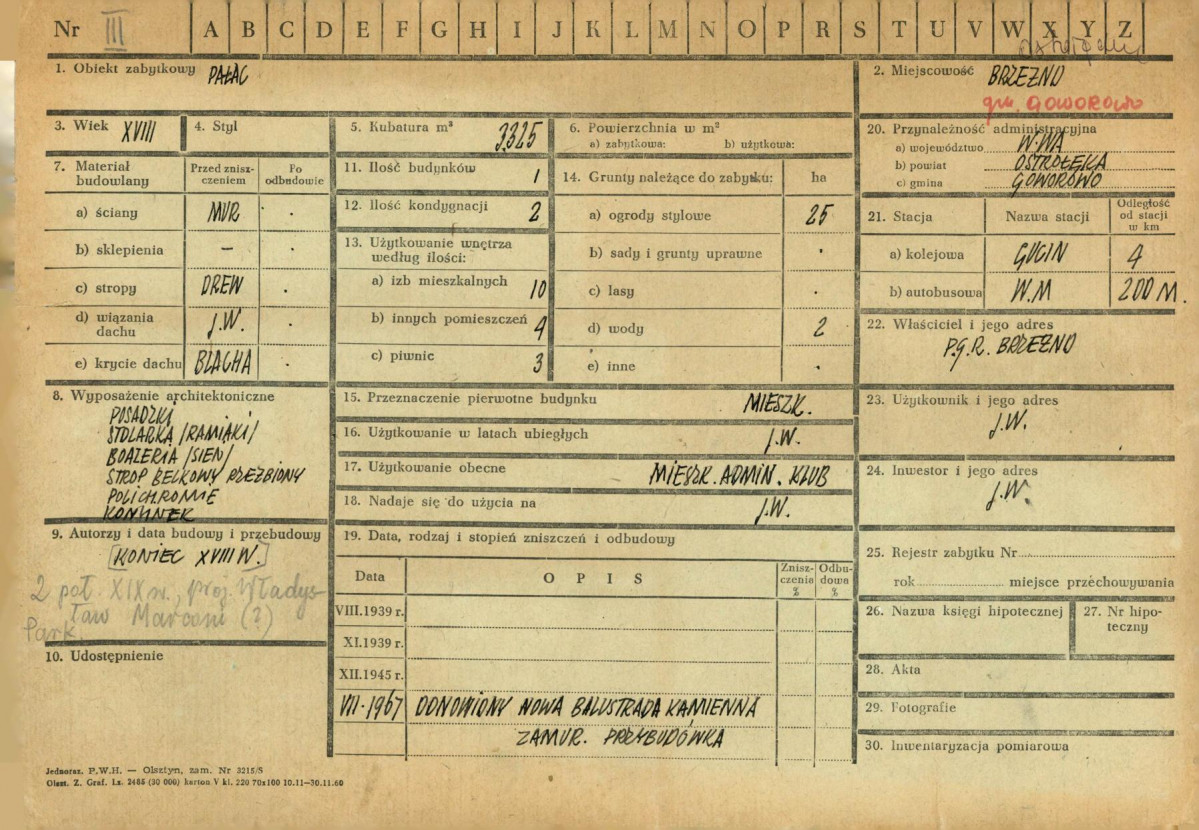 Nr III A B C D E F G H I J K L M N O P R S T U V W X Y Z
1. Obiekt zabytkowy PAŁAC
2. Miejscowość BRZEŹNO
gm. GOWOROWO
3. Wiek XVIII
4. Styl
5. Kubatura m³ 3325
6. Powierzchnia w m²
a) zabytkowa: b) użytkowa:
20. Przynależność administracyjna
a) województwo W-WA
b) powiat OSTROŁĘKA
c) gmina GOWOROWO
7. Materiał budowlany
Przed znisz-
czeniem
Po
odbudowie
a) ściany MUR .
b) sklepienia — .
c) stropy DREW .
d) wiązania
dachu J.W. .
e) krycie dachu BLACHA .
11. Ilość budynków 1
12. Ilość kondygnacji 2
13. Użytkowanie wnętrza
według ilości:
a) izb mieszkalnych 10
b) innych pomieszczeń 4
c) piwnic 3
14. Grunty należące do zabytku: ha
a) ogrody stylowe 25
b) sady i grunty uprawne .
c) lasy .
d) wody 2
e) inne .
21. Stacja Nazwa stacji
Odległość
od stacji
w km
a) kolejowa GUCIN 4
b) autobusowa W.M 200 M.
22. Właściciel i jego adres
P.G.R. BRZEŹNO
8. Wyposażenie architektoniczne
POSADZKI
STOLARKA /RAMIAKI/
BOAZERIA /SIEŃ/
STROP BELKOWY RZEŹBIONY
POLICHROMIE
KOMINEK
15. Przeznaczenie pierwotne budynku MIESZK.
16. Użytkowanie w latach ubiegłych J.W.
17. Użytkowanie obecne MIESZK. ADMIN. KLUB
18. Nadaje się do użycia na J.W.
23. Użytkownik i jego adres
J.W.
24. Inwestor i jego adres
J.W.
9. Autorzy i data budowy i przebudowy
[KONIEC XVIII W.]
2 poł. XIX w., proj. Władys-
ław Marconi (?)
Park
10. Udostępnienie
19. Data, rodzaj i stopień zniszczeń i odbudowy
Data OPIS
Znisz-
czenia
%
Odbu-
dowa
%
VIII.1939 r.
XI.1939 r.
XII.1945 r.
VII-1967 ODNOWIONY NOWA BALUSTRADA KAMIENNA
ZAMUR. PRZYBUDÓWKA
25. Rejestr zabytku Nr
rok miejsce przechowywania
26. Nazwa księgi hipotecznej
27. Nr hipo-
teczny
28. Akta
29. Fotografie
30. Inwentaryzacja pomiarowa
Jednoraz. P.W.H. — Olsztyn, zam. Nr 3215/S
Olszt. Z. Graf. Lz. 2485 (30 000) karton V kl. 220 70x100 10.11—30.11.60